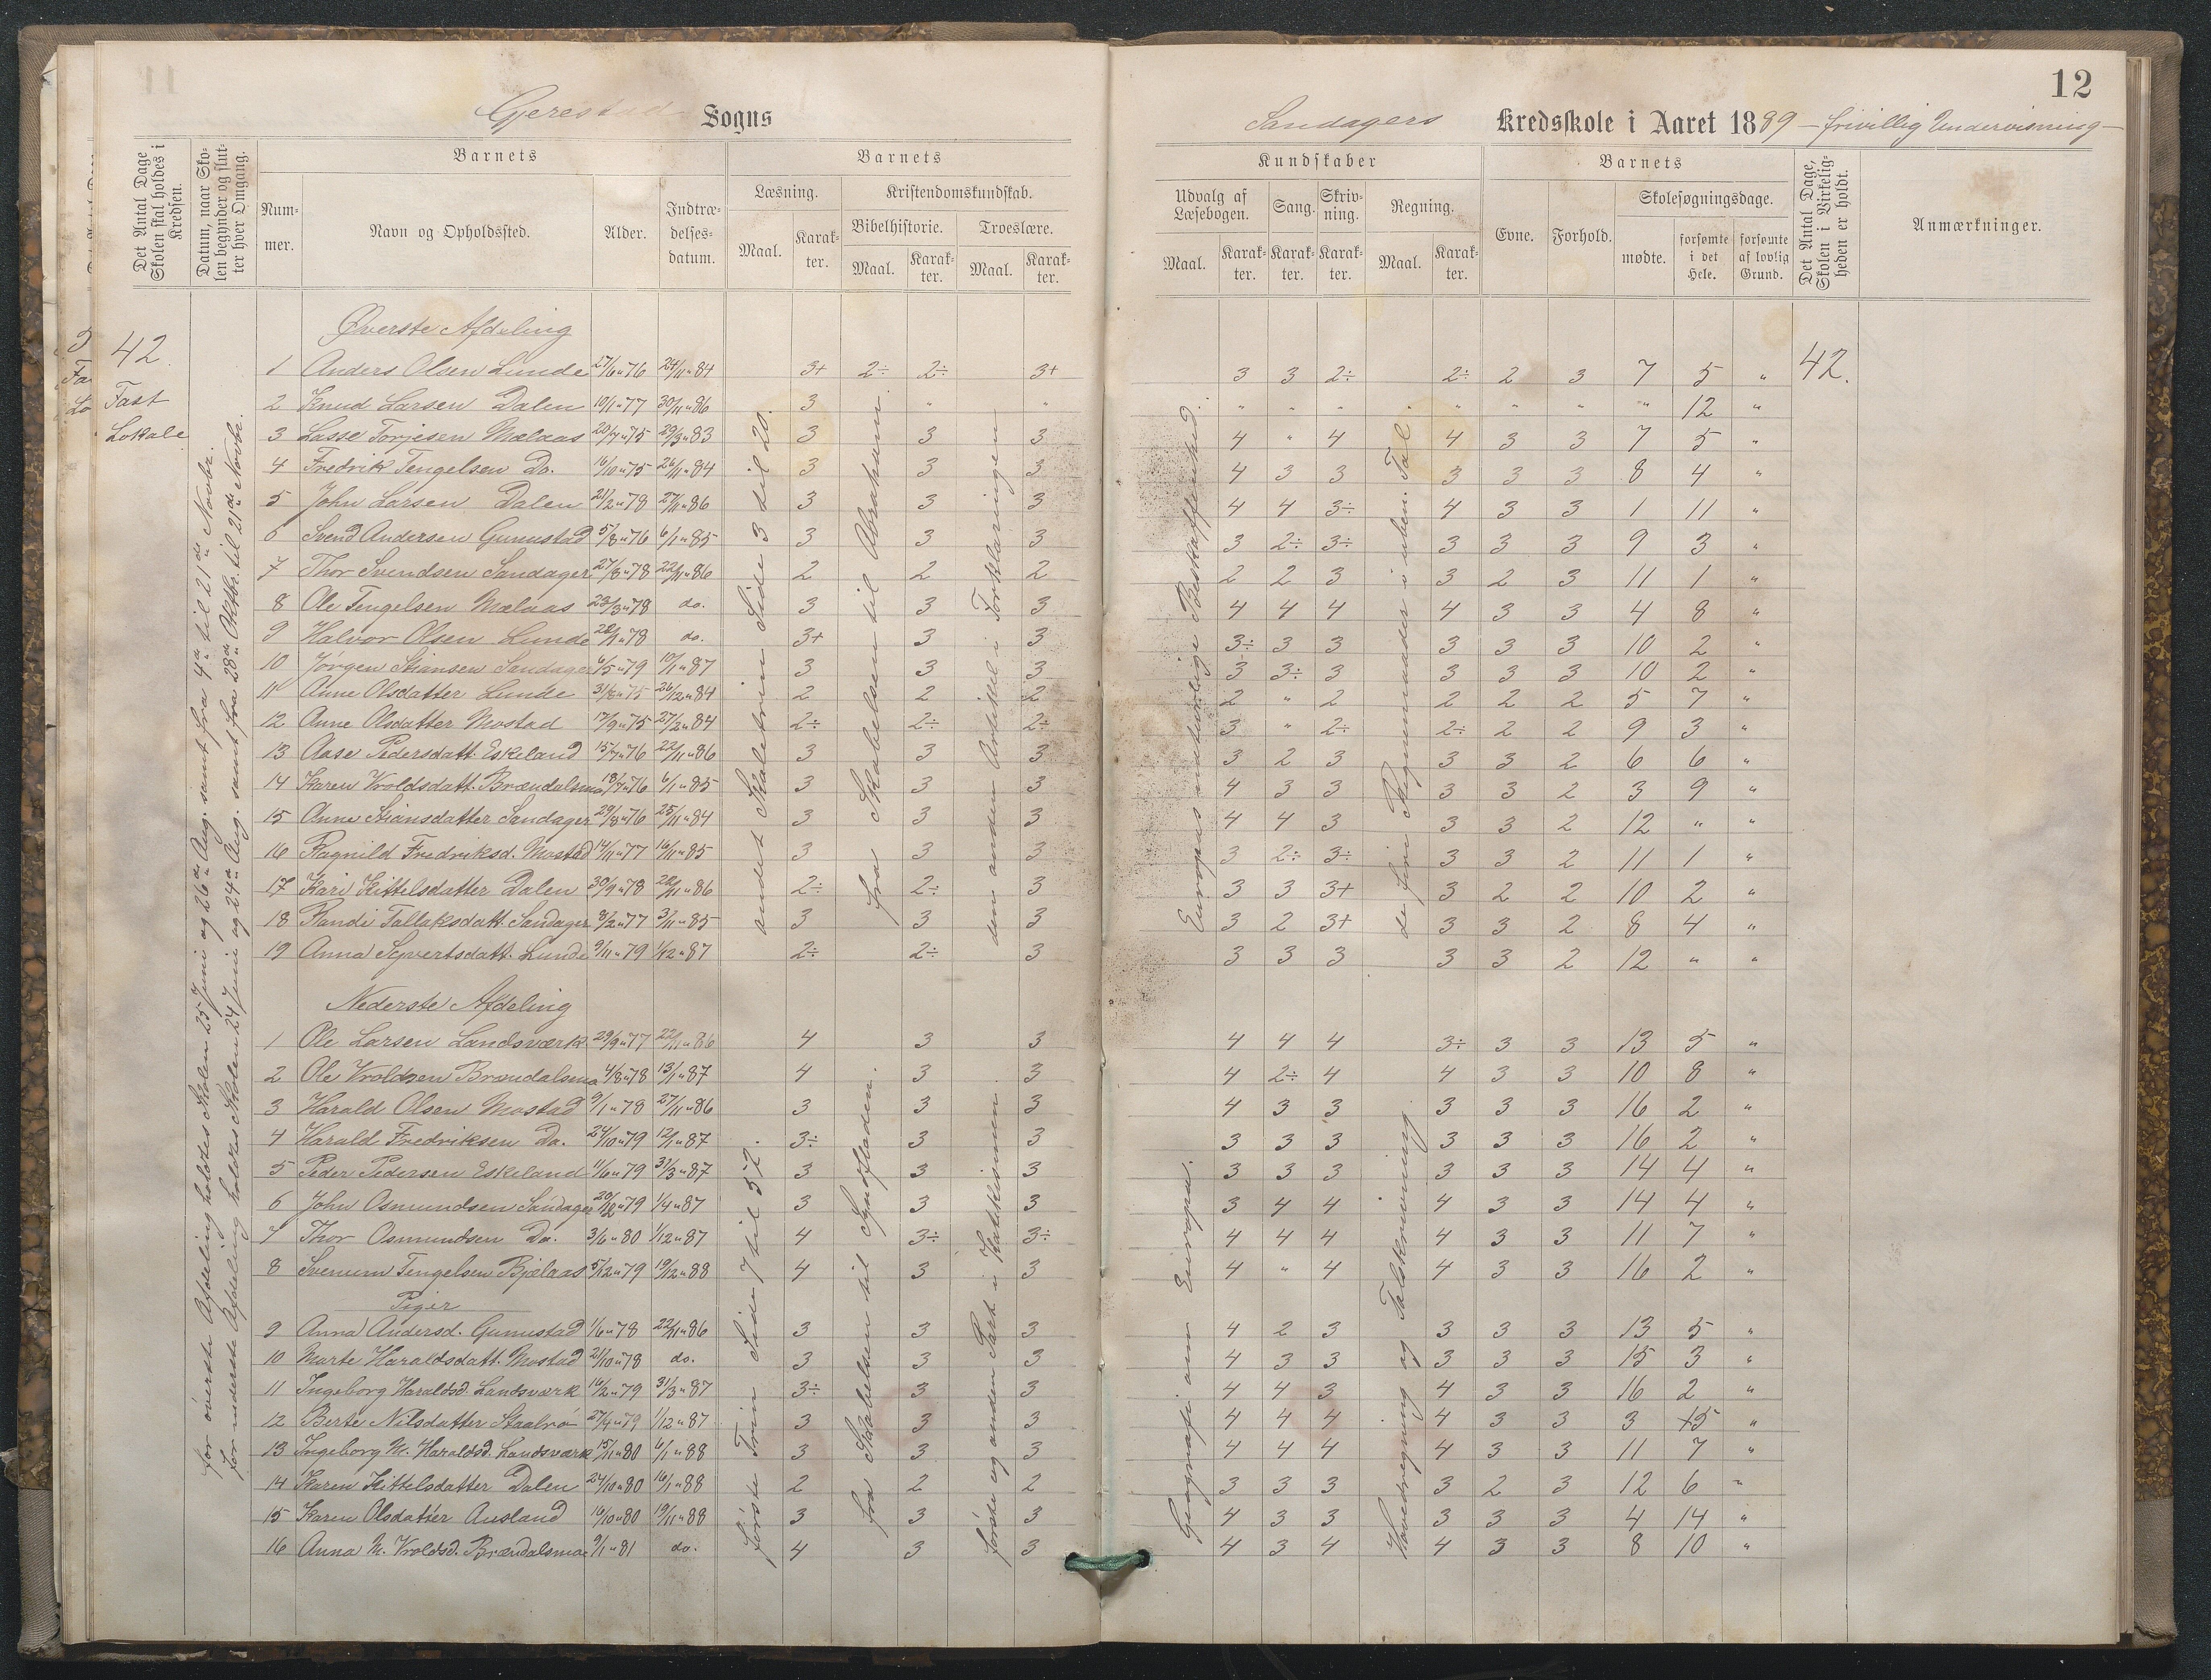 12
Gjerestad Sogns
Sandagers Kredsskole i Aaret 1889 – frivillig Undervisning –
Det Antal Dage Skolen skal holdes i Kredsen.
Datum, naar Skolen begynder og slutter hver Omgang.
Barnets
Nummer.
Navn og Opholdssted.
Alder.
Indtrædelsesdatum.
Barnets
Læsning.
Maal.
Karakter.
Kristendomskundskab.
Bibelhistorie.
Maal.
Karakter.
Troeslære.
Maal.
Karakter.
Kundskaber
Udvalg af Læsebogen.
Maal.
Karakter.
Sang.
Karakter.
Skrivning.
Karakter.
Regning.
Maal.
Karakter.
Barnets
Evne.
Forhold.
Skolesøgningsdage.
mødte.
forsømte i det Hele.
forsømte af lovlig Grund.
Det Antal Dage, Skolen i Virkeligheden er holdt.
Anmærkninger.
42.
Fast
Lokale
for øverste Afdeling holdtes Skolen 25 Juni og 26de Aug. samt fra 4de til 21de Novbr.
for nederste Afdeling holdtes Skolen 24 Juni og 24de Aug. samt fra 28de Oktbr. til 21de Novbr.
42.
Øverste Afdeling
andet Skoletrin Side 3 til 20.
fra Skabelsen til Abraham
den anden Artikel i Forklaringen
Europas naturlige Beskaffenhed.
de fire Regnemaader i uben. Tal
1 Anders Olsen Lunde 27/6 " 76 24/11 " 84 3+ 2÷ 2÷ 3+ 3 3 2÷ 2÷ 2 3 7 5 "
2 Knud Larsen Dalen 10/1 " 77 30/11 " 86 3 " " " " " " " " " 12 "
3 Lasse Torjesen Mælaas 20/7 " 75 29/3 " 83 3 3 3 4 " 4 4 3 3 7 5 "
4 Fredrik Tengelsen Do. 16/10 " 75 26/11 " 84 3 3 3 4 3 3 3 3 3 8 4 "
5 John Larsen Dalen 21/2 " 78 27/11 " 86 3 3 3 4 4 3÷ 4 3 3 1 11 "
6 Svend Andersen Gunnstad 5/8 " 76 6/1 " 85 3 3 3 3 2÷ 3÷ 3 3 3 9 3 "
7 Thor Svendsen Sandager 27/8 " 78 22/11 " 86 2 2 2 2 2 3 3 2 3 11 1 "
8 Ole Tengelsen Mælaas 23/3 " 78 do. 3 3 3 4 4 4 4 3 3 4 8 "
9 Halvor Olsen Lunde 28/1 " 78 do. 3+ 3 3 3÷ 3 3 3 3 3 10 2 "
10 Jørgen Stiansen Sandager 6/5 " 79 10/1 " 87 3 3 3 3 3÷ 3 3 3 3 10 2 "
11 Anne Olsdatter Lunde 31/8 " 75 26/12 " 84 2 2 2 2 " 2 2 2 2 5 7 "
12 Anne Olsdatter Mostad 17/9 " 75 27/2 " 84 2÷ 2÷ 2÷ 3 " 2÷ 2÷ 2 2 9 3 "
13 Aase Pedersdatt. Eskeland 15/7 " 76 22/11 " 86 3 3 3 3 2 3 3 3 2 6 6 "
14 Karen Vroldsdatt. Brændalsmo 18/7 " 76 6/1 " 85 3 3 3 4 3 3 3 3 2 3 9 "
15 Anne Stiansdatter Sandager 29/8 " 76 25/11 " 84 3 3 3 4 4 3 3 3 2 12 " "
16 Ragnild Fredriksd. Mostad 14/11 " 77 16/11 " 85 3 3 3 3 2÷ 3÷ 3 3 2 11 1 "
17 Kari Kittelsdatter Dalen 30/9 " 78 28/11 " 86 2÷ 2÷ 3 3 3 3+ 3 2 2 10 2 "
18 Randi Tallaksdatt. Sandager 8/2 " 77 3/11 " 85 3 3 3 3 2 3+ 3 3 2 8 4 "
19 Anna Syvertsdatt. Lunde 9/11 " 79 1/12 " 87 2÷ 2÷ 3 3 3 3 3 3 2 12 " "
Nederste Afdeling
første Trin Side 7 til 52.
fra Skabelsen til Syndfloden.
første og anden Part i Katekismen.
Geografi: om Europa.
Hovedregning og Talskrivning.
1 Ole Larsen Landsværk 29/9 " 77 22/11 " 86 4 3 3 4 4 4 3÷ 3 3 13 5 "
2 Ole Vroldsen Brændalsmo 4/8 " 78 13/1 " 87 4 3 3 4 2÷ 4 4 3 3 10 8 "
3 Harald Olsen Mostad 9/1 " 78 27/11 " 86 3 3 3 4 3 3 3 3 3 16 2 "
4 Harald Fredriksen Do. 24/10 " 79 12/1 " 87 3÷ 3 3 3 3 3 3 3 3 16 2 "
5 Peder Pedersen Eskeland 11/6 " 79 31/3 " 87 3 3 3 3 3 3 3 3 3 14 4 "
6 John Osmundsen Sandager 20/12 " 79 1/4 " 87 3 3 3 3 4 4 4 3 3 14 4 "
7 Thor Osmundsen Do. 3/6 " 80 1/12 " 87 4 3÷ 3÷ 4 4 4 4 3 3 11 7 "
8 Svenum Tengelsen Bjelaas 5/12 " 79 19/12 " 88 4 3 3 4 " 4 4 3 3 16 2 "
Piger
9 Anna Andersd. Gunnstad 1/6 " 78 22/11 " 86 3 3 3 4 2 3 3 3 3 13 5 "
10 Marte Haraldsdatt. Mostad 21/10 " 78 do. 3 3 3 4 3 3 3 3 3 15 3 "
11 Ingeborg Haraldsd. Landsværk 16/2 " 79 31/3 " 87 3÷ 3 3 4 4 3 4 3 3 16 2 "
12 Berte Nilsdatter Staalrø 27/4 " 79 1/12 " 87 3 3 3 4 4 4 4 3 3 3 15 "
13 Ingeborg M. Haraldsd. Landsværk 15/11 " 80 6/1 " 88 3 3 3 4 4 4 4 3 3 11 7 "
14 Karen Kittelsdatter Dalen 24/10 " 80 16/1 " 88 2 2 2 3 3 3 3 2 3 12 6 "
15 Karen Olsdatter Ausland 16/10 " 80 19/11 " 88 3 3 3 4 3 3 3 3 3 4 14 "
16 Anna M. Vroldsd. Brændalsmo 9/1 " 81 do. 4 3 3 4 3 4 4 3 3 8 10 "